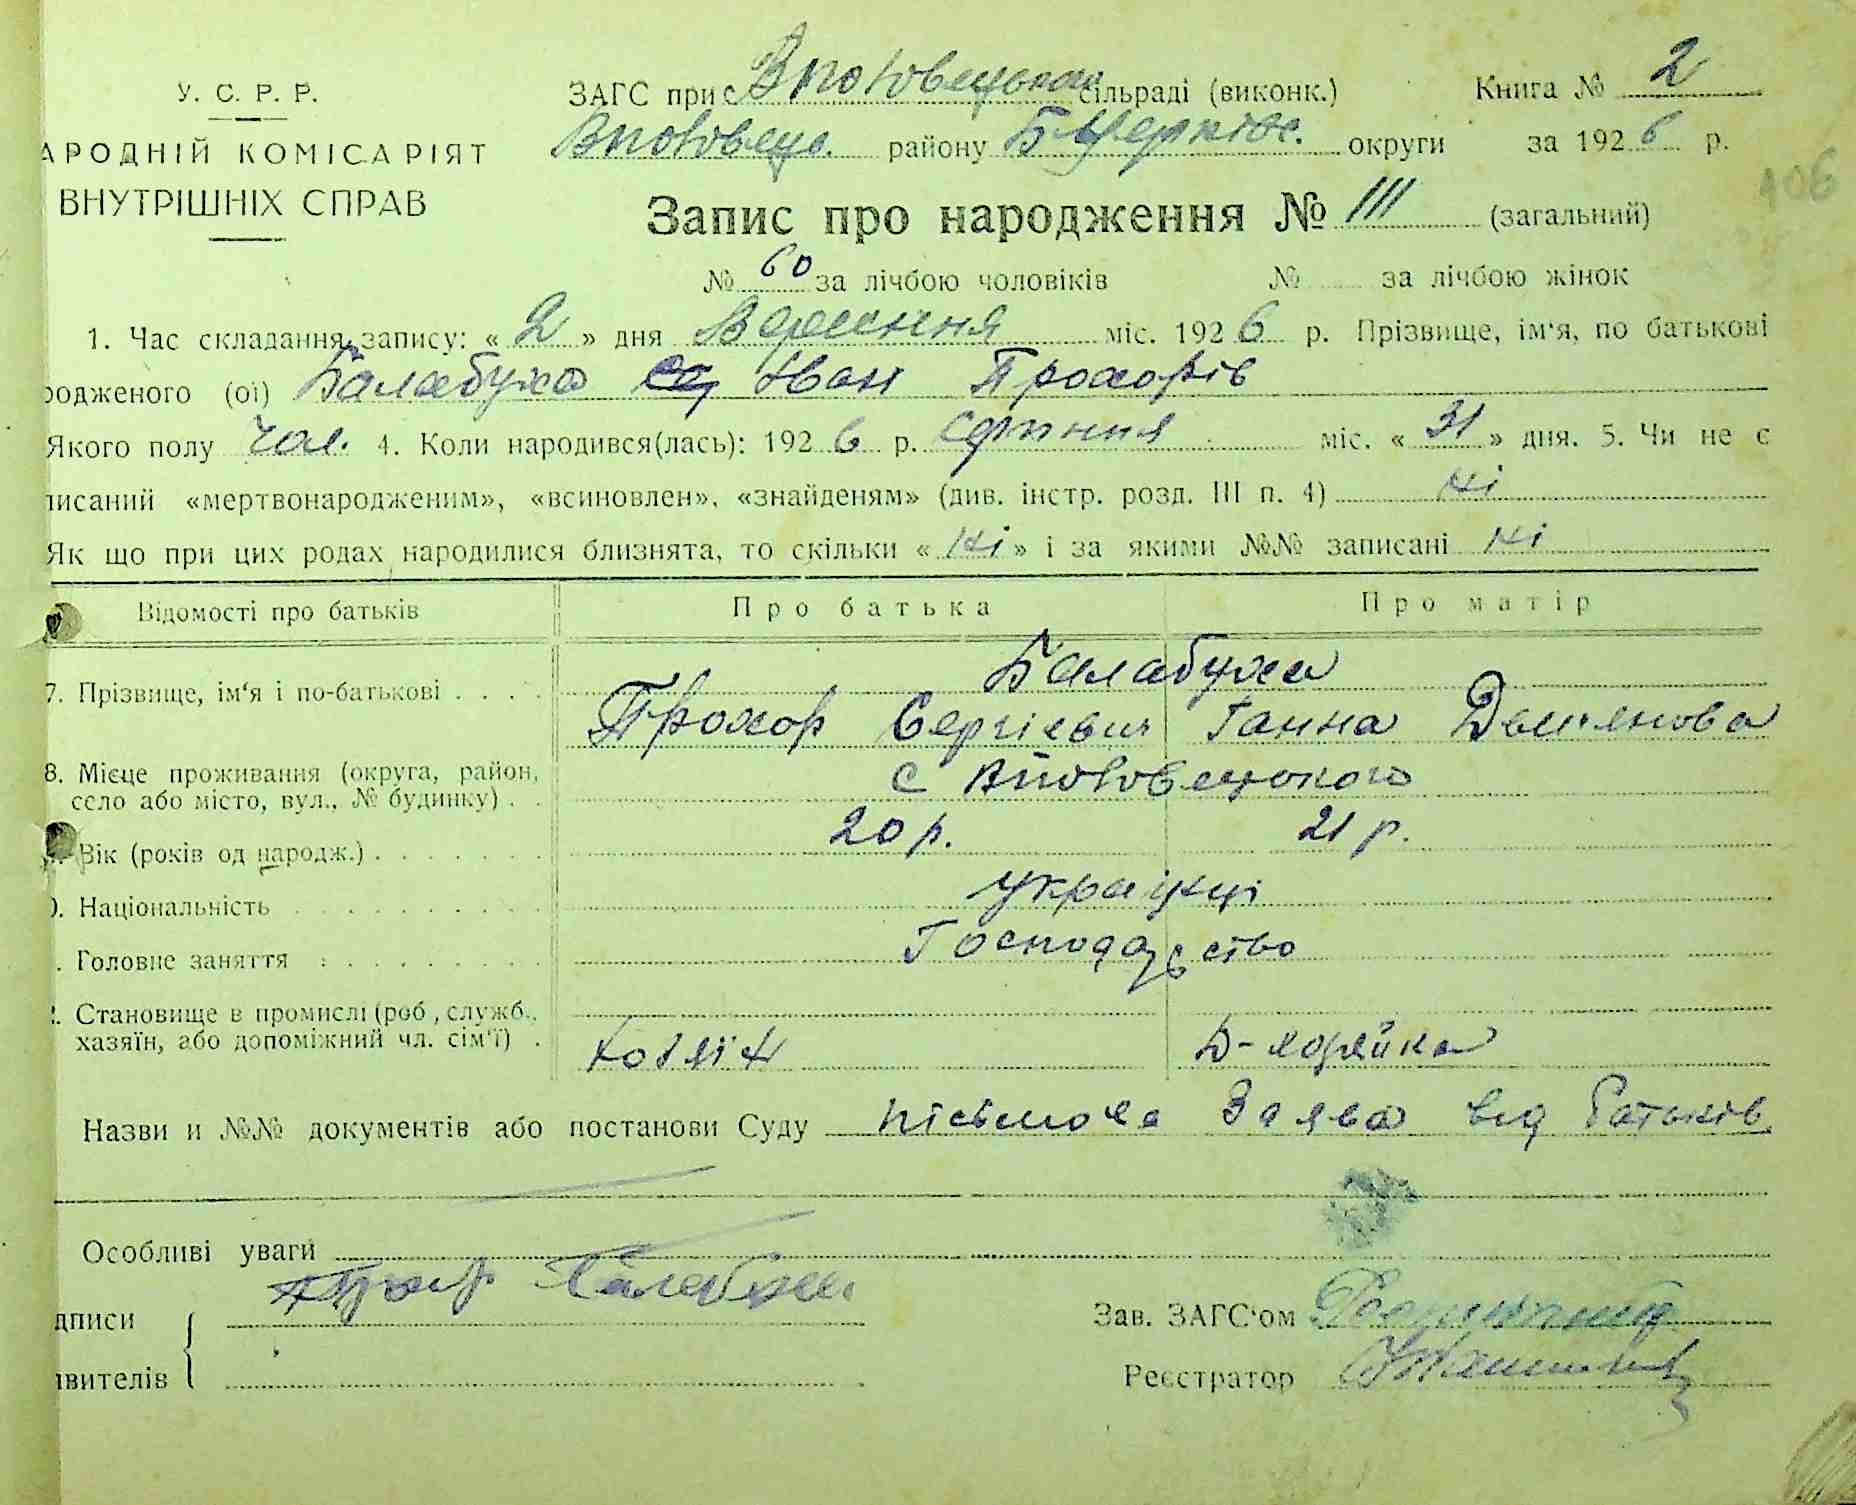 У. С. Р. Р.
АРОДНІЙ КОМІСАРІЯТ
ВНУТРІШНІХ СПРАВ
ЗАГС при с сільраді (виконк.) Книга № 2
району Б Церків. округи за 1926 р.
106
Запис про народження № 111 (загальний)
№ 60 за лічбою чоловіків № за лічбою жінок
1. Час складання запису: « 2 » дня Вересня міс. 1926 р. Прізвище, ім'я, по батькові
одженого (ої) Балабуха Іван Прохорів
Якого полу чол. 4. Коли народився(лась): 1926 р. серпня міс. « 31 » дня. 5. Чи не є
писаний «мертвонародженим», «всиновлен», «знайденям» (див. інстр. розд. III п. 4) ні
Як що при цих родах народилися близнята, то скільки « ні » і за якими №№ записані ні
Відомості про батьків Про батька Про матір
Балабуха
7. Прізвище, ім'я і по-батькові Прохор Сергієвич Ганна Демʼянова
8. Місце проживання (округа, район, село або місто, вул., № будинку) с
Вік (років од народж.) 20 р. 21 р.
Національність українці
Головне заняття Господарство
Становище в промислі (роб, служб., хазяїн, або допоміжний чл. сім'ї)
Назви и №№ документів або постанови Суду Заява від батьків
Особливі уваги
дписи
явителів
Зав. ЗАГС'ом
Реєстратор